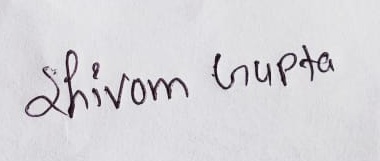 Shivom Gupta